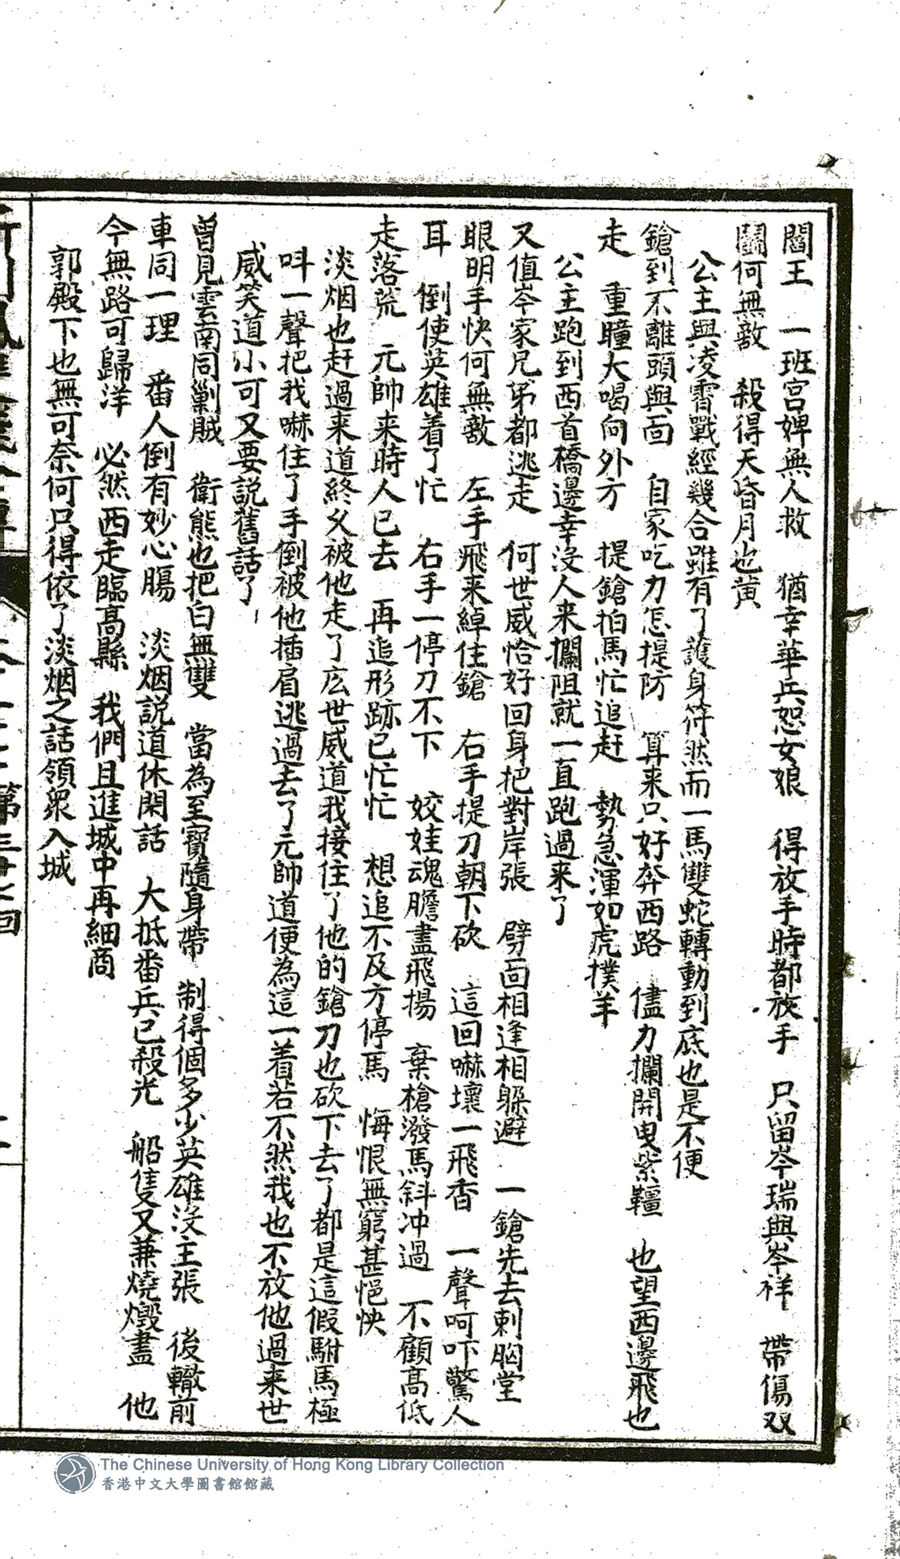 閻王　一班宮婢無人救　猶幸華兵恕女娘　得放手時都放手　只留岑瑞與岑祥　帶傷双
鬭何無敵　殺得天昏月也黃
公主與凌霄戰經幾合雖有了護身符然而一馬雙蛇轉動到底也是不便
鎗到不離頭與面　自家吃力怎提防　算来只好奔西路　儘力攔開曳紫韁　也望西邊飛也
走　重瞳大喝向外方　提鎗拍馬忙追赶　勢急渾如虎撲羊
公主跑到西首橋邊幸沒人来攔阻就一直跑過来了
又值岑家兄弟都逃走　何世威恰好回身把對岸張　劈面相逢相躲避　一鎗先去刺胸堂
眼明手快何無敵　左手飛来綽住鎗　右手提刀朝下砍　這回嚇壞一飛香　一聲呵吓驚人
耳　倒使英雄着了忙　右手一停刀不下　姣娃魂膽盡飛揚　棄槍潑馬斜冲過　不顧高低
走落荒　元帥来時人已去　再追形跡已忙忙　想追不及方停馬　悔恨無窮甚悒怏
淡烟也赶過来道終久被他走了庅世威道我接住了他的鎗刀也砍下去了都是這假駙馬極
呌一聲把我嚇住了手倒被他插眉逃過去了元帥道便為這一着若不然我也不放他過来世
威笑道小可又要説舊話了
曾見雲南同剿賊　衛熊也把白無雙　當為至寶隨身帶　制得個多少英雄沒主張　後轍前
車同一理　番人倒有妙心腸　淡烟説道休閑話　大抵番兵已殺光　船隻又兼燒燬盡　他
今無路可歸洋　必然西走臨高縣　我們且進城中再細商
郭殿下也無可奈何只得依了淡烟之話領衆入城
第三十七回
The Chinese University of Hong Kong Library Collection
香港中文大學圖書館館藏